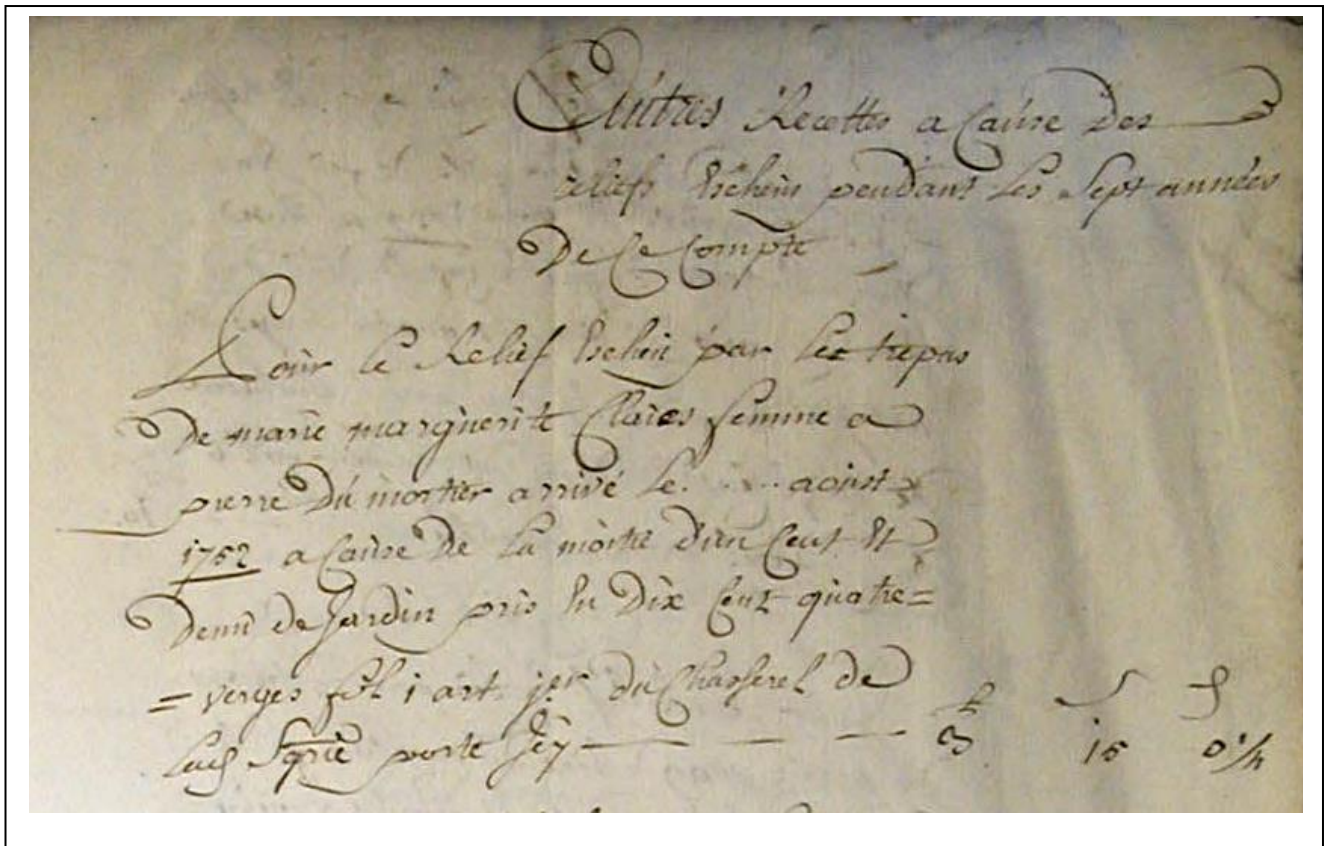 Autres Recettes a Cause Des
reliefs Escheus pendant Les Sept années
De Ce Compte
Pour Le Relief Escheu par Le trepas
De marie marguerite Claies femme a
pierre Du mortier arrivé Le .... aoust
1752 a Cause De La moitié d'un Cent Et
Demi de Jardin pris En Dix Cent quatre=
= verges fol 1 art. 1er du Chasserel de
Lad Sgrie porte Jcy — — — — 3 15 0 1/2